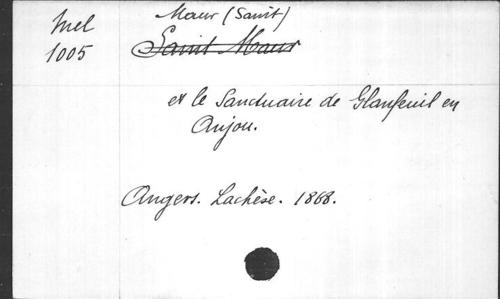 Mel
1005
Maur (Saint)
Saint Maur
et le Sanctuaire de Glanfeuil en
Anjou.
Angers. Lachèse. 1868.